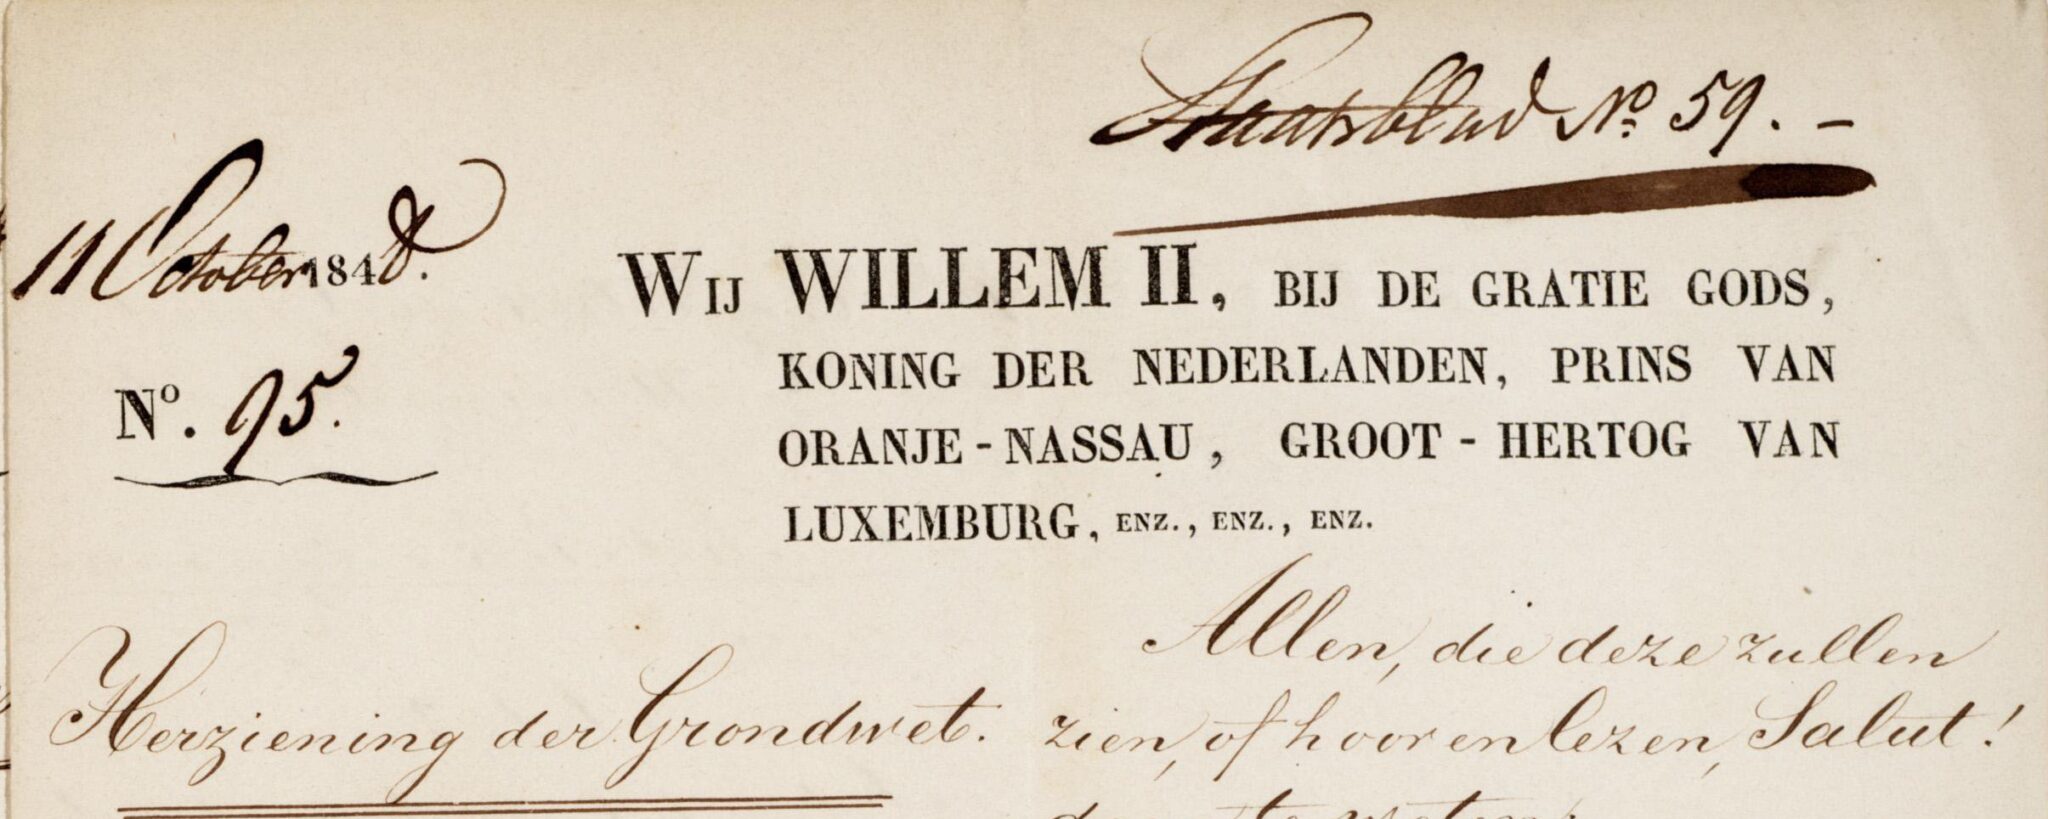 Staatsblad No. 59. –
11 October 1848.
No. 95.
Wij WILLEM II, BIJ DE GRATIE GODS,
KONING DER NEDERLANDEN, PRINS VAN
ORANJE-NASSAU, GROOT-HERTOG VAN
LUXEMBURG, ENZ., ENZ., ENZ.
Herziening der Grondwet.
Allen, die deze zullen
zien, of hooren lezen, Salut!